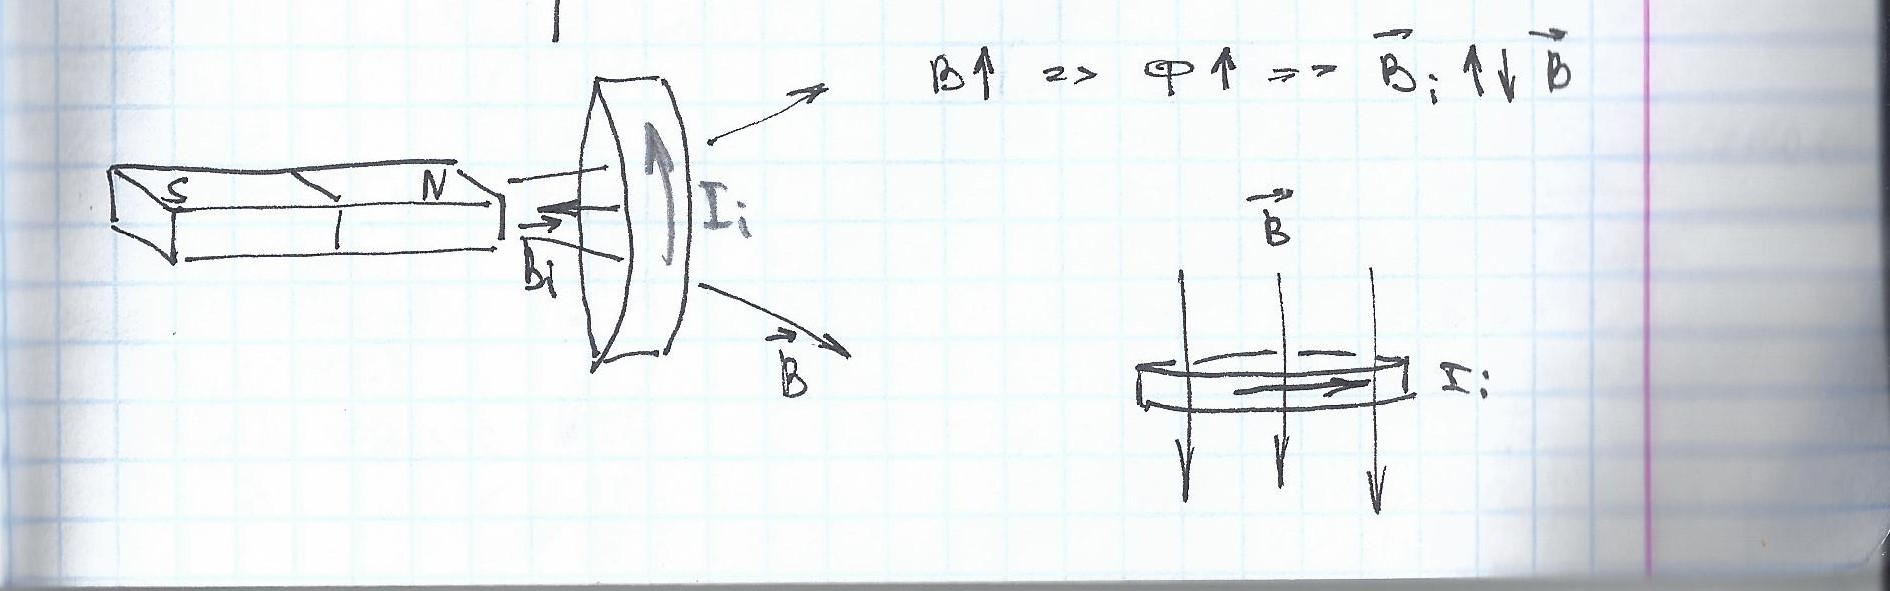 B↑ => Φ↑ => B⃗i ↑↓ B⃗
S N
Ii
Bi
B⃗
B⃗
Ii